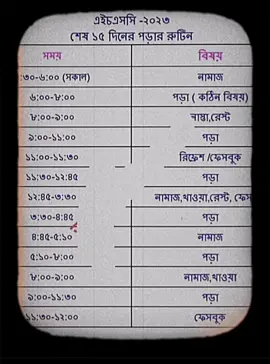 এইচএসসি -২০২৩
শেষ ১৫ দিনের পড়ার রুটিন
সময় বিষয়
:৩০-৬:০০ (সকাল) নামাজ
৬:০০-৮:০০ পড়া ( কঠিন বিষয়)
৮:০০-৯:০০ নাস্তা,রেস্ট
৯:০০-১১:০০ পড়া
১১:০০-১১:৩০ রিফ্রেশ /ফেসবুক
১১:৩০-১২:৪৫ পড়া
১২:৪৫-৩:৩০ নামাজ,খাওয়া,রেস্ট, ফেস
৩:৩০-৪:৪৫ পড়া
৪:৪৫-৫:১০ নামাজ
৫:১০-৮:০০ পড়া
৮:০০-৯:০০ নামাজ,খাওয়া
৯:০০-১১:৩০ পড়া
১১:৩০-১২:০০ ফেসবুক